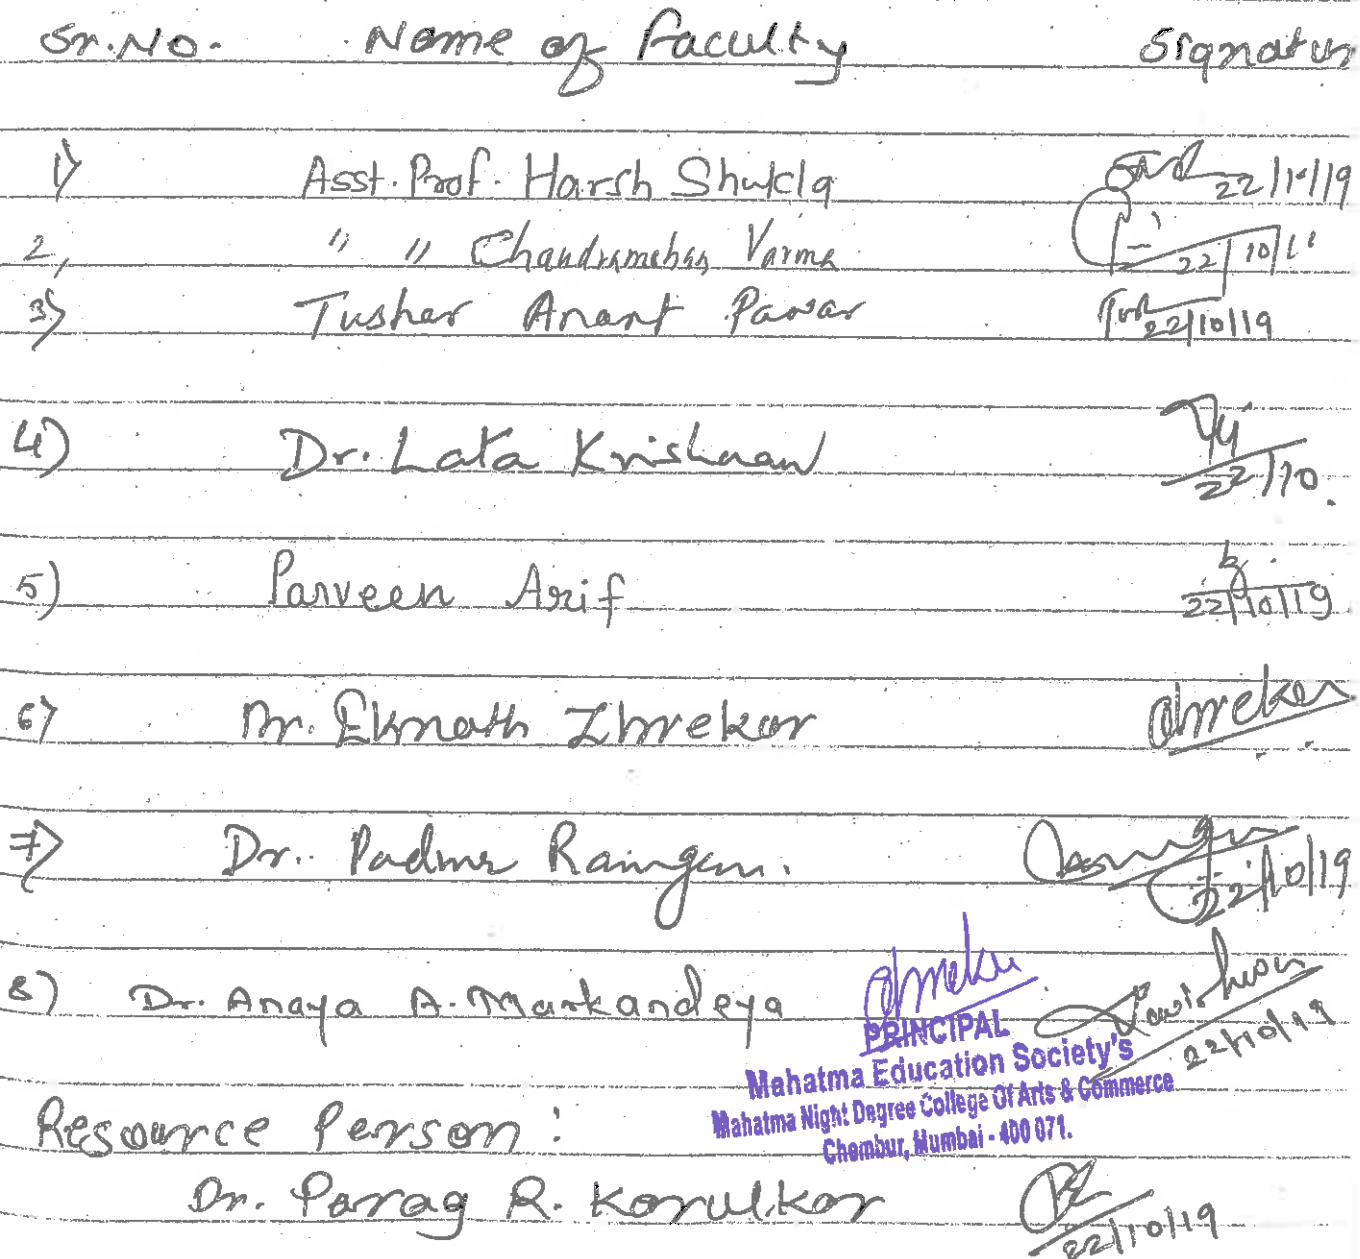 Sr.No. Name of Faculty Signatur
1) Asst. Prof. Harsh Shukla 22/10/19
2, " " Chandramohan Varma 22/10/1
3) Tushar Anant Pawar 22/10/19
4) Dr. Lata Krishnan 22/10.
5) Parveen Arif 22/10/19
6) Dr. Eknath Zhrekar
7) Dr. Padma Rangan. 22/10/19
8) Dr. Anaya A. Markandeya 22/10/19
PRINCIPAL
Mahatma Education Society's
Mahatma Night Degree College Of Arts & Commerce
Chembur, Mumbai - 400 071.
Resource Person :
Dr. Parag R. Karulkar 22/10/19